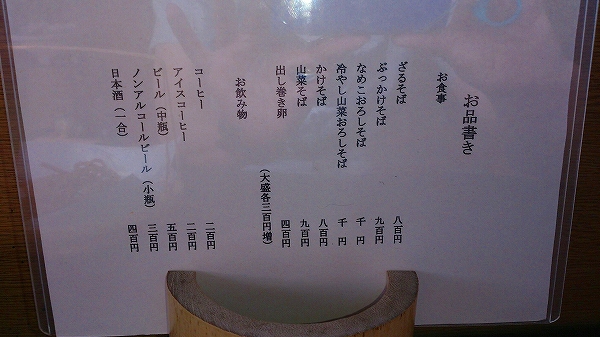 お品書き
お食事
ざるそば 八百円
ぶっかけそば 九百円
なめこおろしそば 千円
冷やし山菜おろしそば 千円
かけそば 八百円
山菜そば 九百円
出し巻き卵 四百円
(大盛各三百円増)
お飲み物
コーヒー 二百円
アイスコーヒー 二百円
ビール(中瓶) 五百円
ノンアルコールビール(小瓶) 三百円
日本酒(一合) 四百円